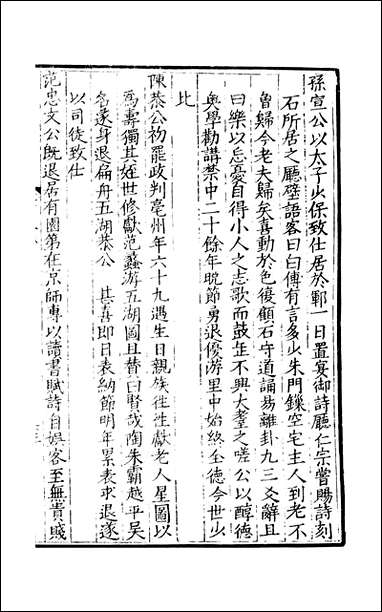 孫宣公以太子少保致仕居於鄆一日置宴御詩廳仁宗嘗賜詩刻
石所居之廳壁語客曰白傅有言多少朱門鏁空宅主人到老不
曾歸今老夫歸矣喜動於色復顧石守道誦易離卦九三爻辭且
曰樂以忘憂自得小人之志歌而鼓缶不興大耋之嗟公以醇德
奥學勸講禁中二十餘年晚節勇退優游里中始終全德今世少
比
陳恭公初罷政判亳州年六十九遇生日親族徃徃獻老人星圖以
爲壽獨其姪世修獻范蠡游五湖圖且賛曰賢哉陶朱霸越平吴
名遂身退扁舟五湖恭公 甚喜即日表納節明年累表求退遂
以司徒致仕
范忠文公旣退居有園第在京師專以讀書賦詩自娯客至無貴賤